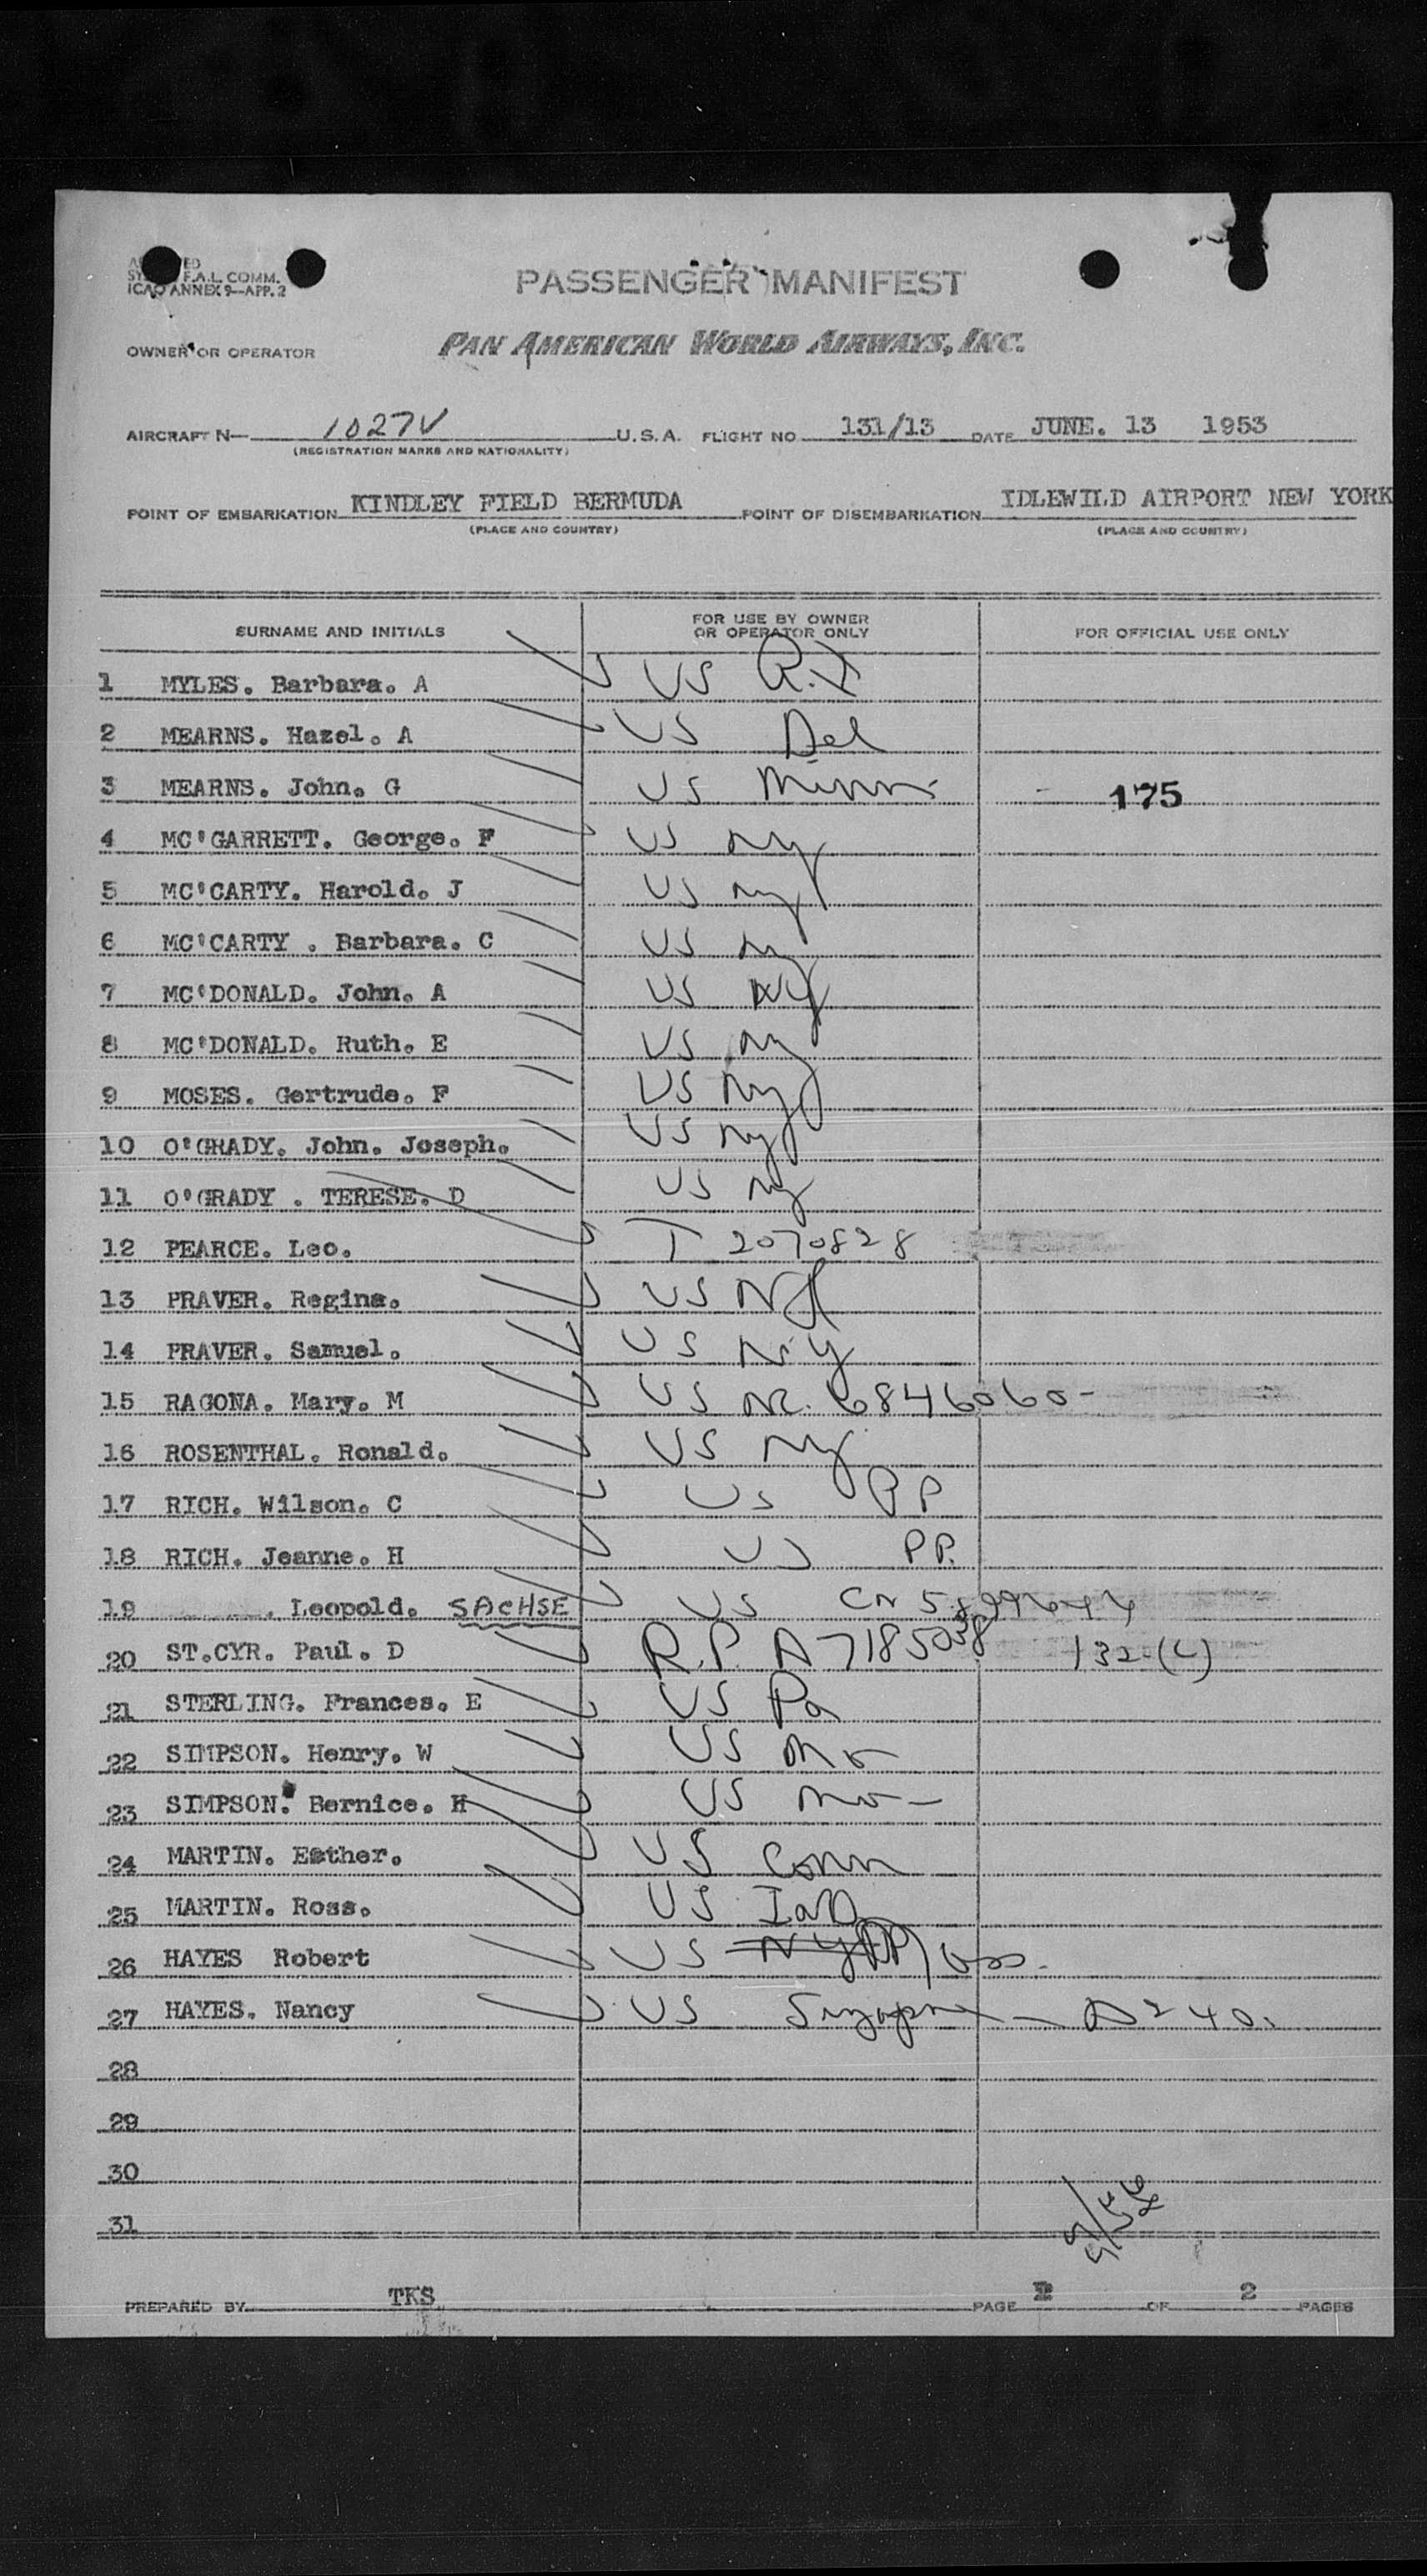 F.A.L. COMM.
ICAO ANNEX 9—APP. 2
PASSENGER MANIFEST
OWNER OR OPERATOR PAN AMERICAN WORLD AIRWAYS, INC.
AIRCRAFT N— 1027V U.S.A. FLIGHT NO 131/13 DATE JUNE. 13 1953
(REGISTRATION MARKS AND NATIONALITY)
POINT OF EMBARKATION KINDLEY FIELD BERMUDA POINT OF DISEMBARKATION IDLEWILD AIRPORT NEW YORK
(PLACE AND COUNTRY) (PLACE AND COUNTRY)
SURNAME AND INITIALS FOR USE BY OWNER OR OPERATOR ONLY FOR OFFICIAL USE ONLY
1 MYLES. Barbara. A US R.I
2 MEARNS. Hazel. A US Del
3 MEARNS. John. G US Minn 175
4 MC'GARRETT. George. F US NY
5 MC'CARTY. Harold. J US NY
6 MC'CARTY . Barbara. C US NY
7 MC'DONALD. John. A US NY
8 MC'DONALD. Ruth. E US NY
9 MOSES. Gertrude. F US NY
10 O'GRADY. John. Joseph. US NY
11 O'GRADY . TERESE. D US NY
12 PEARCE. Leo. T 2070828
13 PRAVER. Regina. US
14 PRAVER. Samuel. US NY
15 RAGONA. Mary. M US NR. 6846060-
16 ROSENTHAL. Ronald. US NY
17 RICH. Wilson. C US PP
18 RICH. Jeanne. H US PP.
19 . Leopold. SACHSE US CN
20 ST.CYR. Paul. D R.P. A7185038 132-(L)
21 STERLING. Frances. E US Pa
22 SIMPSON. Henry. W US Mo
23 SIMPSON. Bernice. H US Mo-
24 MARTIN. Esther. US Conn
25 MARTIN. Ross. US
26 HAYES Robert US NY PP
27 HAYES. Nancy US Singapore - A240.
28
29
30
31
PREPARED BY TKS PAGE 2 OF 2 PAGES